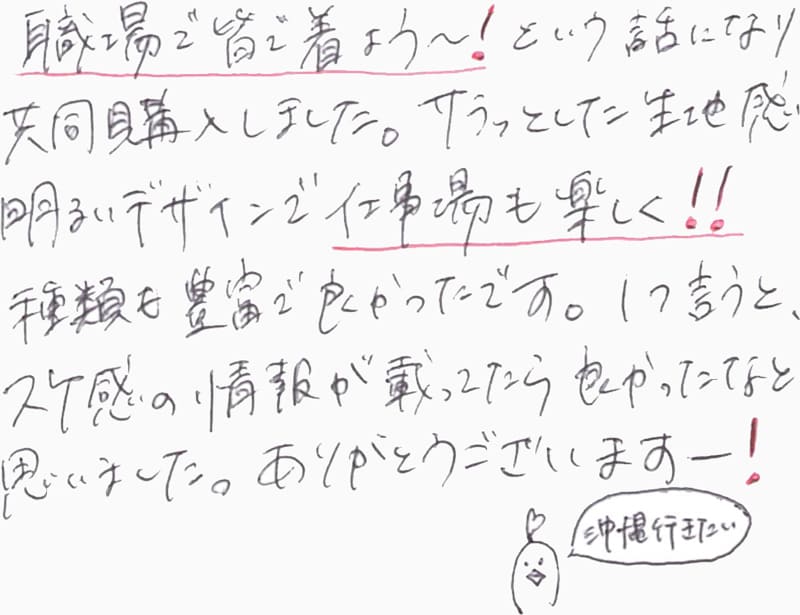 職場で皆で着よう〜！という話になり
共同購入しました。サラっとした生地感
明るいデザインで仕事場も楽しく！！
種類も豊富で良かったです。1つ言うと、
スケ感の情報が載ってたら良かったなと
思いました。ありがとうございますー！
沖縄行きたい